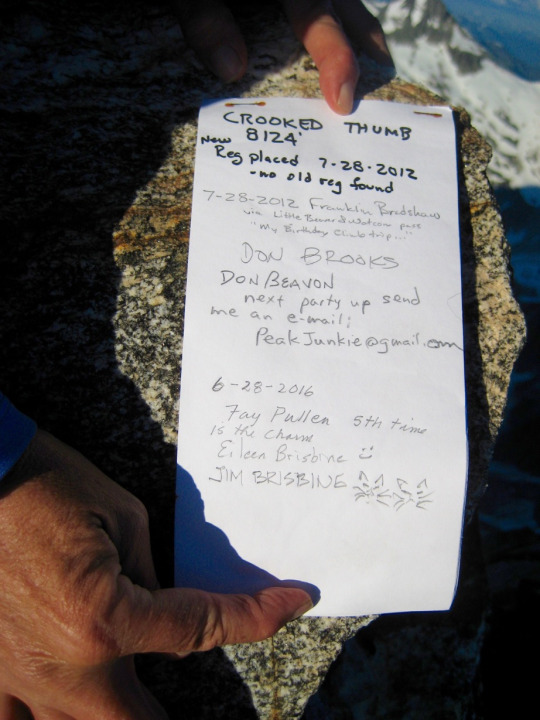 CROOKED THUMB
8124'
New
Reg placed 7-28-2012
-no old reg found
7-28-2012 Franklin Bradshaw
via Little Beaver & Watcom pass
"My Birthday Climb trip..."
DON BROOKS
DON BEAVON
next party up send
me an e-mail;
PeakJunkie@gmail.com
6-28-2016
Fay Pullen 5th time
is the charm
Eileen Brisbine
JIM BRISBINE